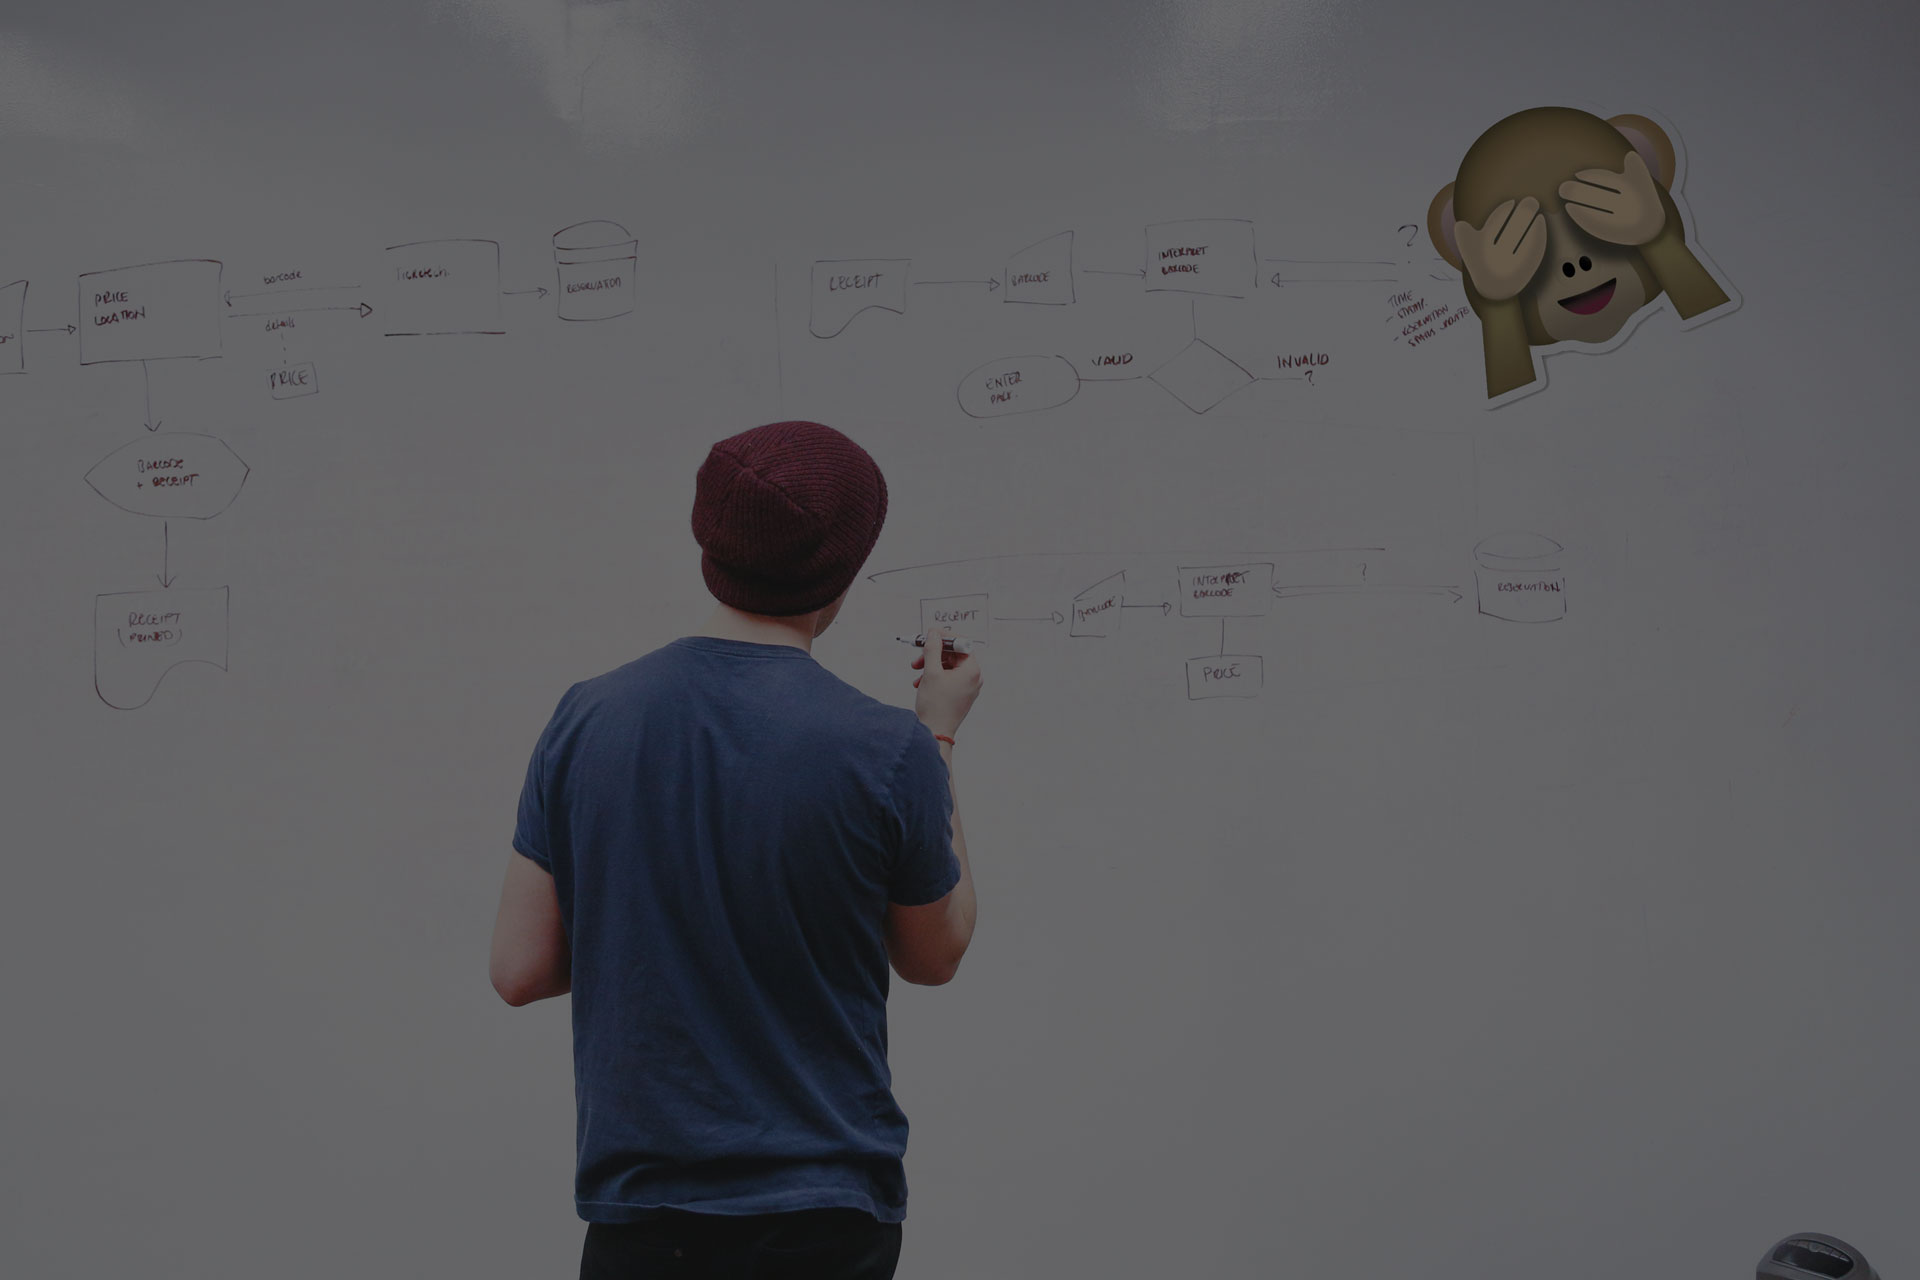 PRICE
LOCATION
barcode
details
PRICE
RESERVATION
BARCODE
+ RECEIPT
RECEIPT
(PRINTED)
RECEIPT
BARCODE
INTERPRET
BARCODE
?
TIME
- STAMP.
- RESERVATION
STATUS UPDATE
VALID
INVALID
?
ENTER
RECEIPT
?
BARCODE
INTERPRET
BARCODE
?
RESERVATION
PRICE